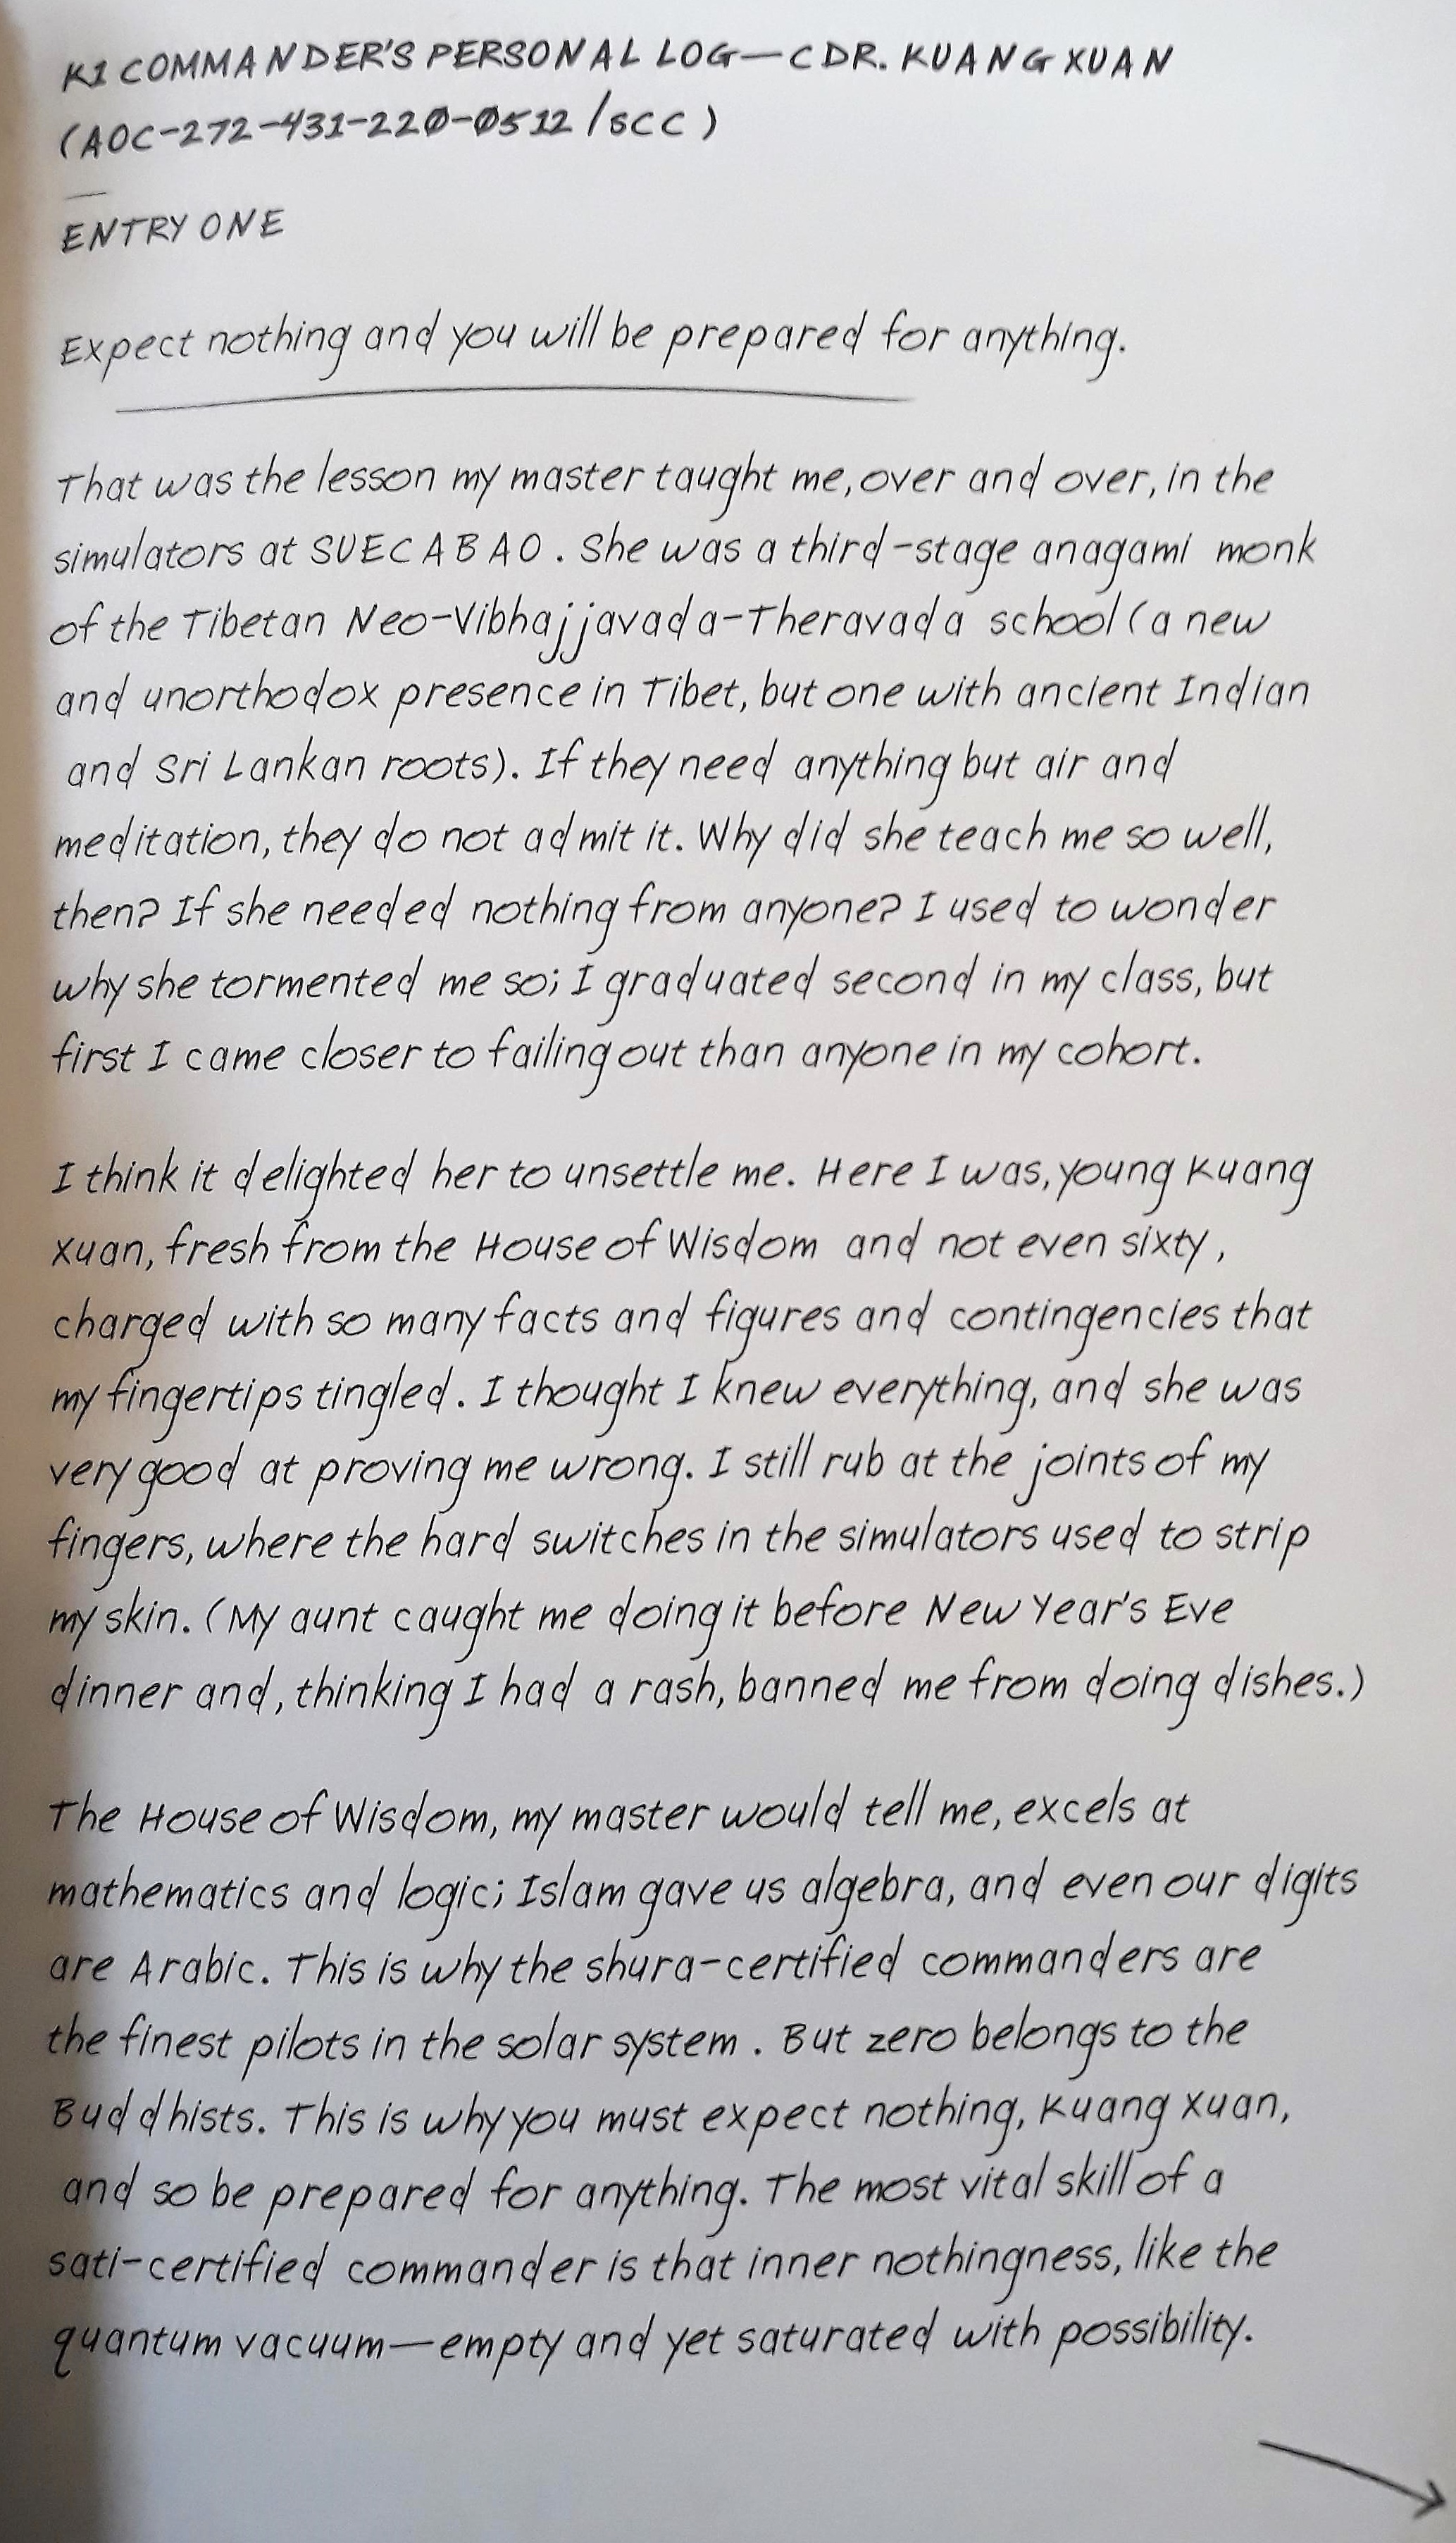 K1 COMMANDER'S PERSONAL LOG—CDR. KUANG XUAN
(AOC-272-431-220-0512/SCC)
—
ENTRY ONE
Expect nothing and you will be prepared for anything.
That was the lesson my master taught me, over and over, in the
simulators at SUECABAO. She was a third-stage anagami monk
of the Tibetan Neo-Vibhajjavada-Theravada school (a new
and unorthodox presence in Tibet, but one with ancient Indian
and Sri Lankan roots). If they need anything but air and
meditation, they do not admit it. Why did she teach me so well,
then? If she needed nothing from anyone? I used to wonder
why she tormented me so; I graduated second in my class, but
first I came closer to failing out than anyone in my cohort.
I think it delighted her to unsettle me. Here I was, young Kuang
Xuan, fresh from the House of Wisdom and not even sixty,
charged with so many facts and figures and contingencies that
my fingertips tingled. I thought I knew everything, and she was
very good at proving me wrong. I still rub at the joints of my
fingers, where the hard switches in the simulators used to strip
my skin. (My aunt caught me doing it before New Year's Eve
dinner and, thinking I had a rash, banned me from doing dishes.)
The House of Wisdom, my master would tell me, excels at
mathematics and logic; Islam gave us algebra, and even our digits
are Arabic. This is why the shura-certified commanders are
the finest pilots in the solar system. But zero belongs to the
Buddhists. This is why you must expect nothing, Kuang Xuan,
and so be prepared for anything. The most vital skill of a
sati-certified commander is that inner nothingness, like the
quantum vacuum—empty and yet saturated with possibility.